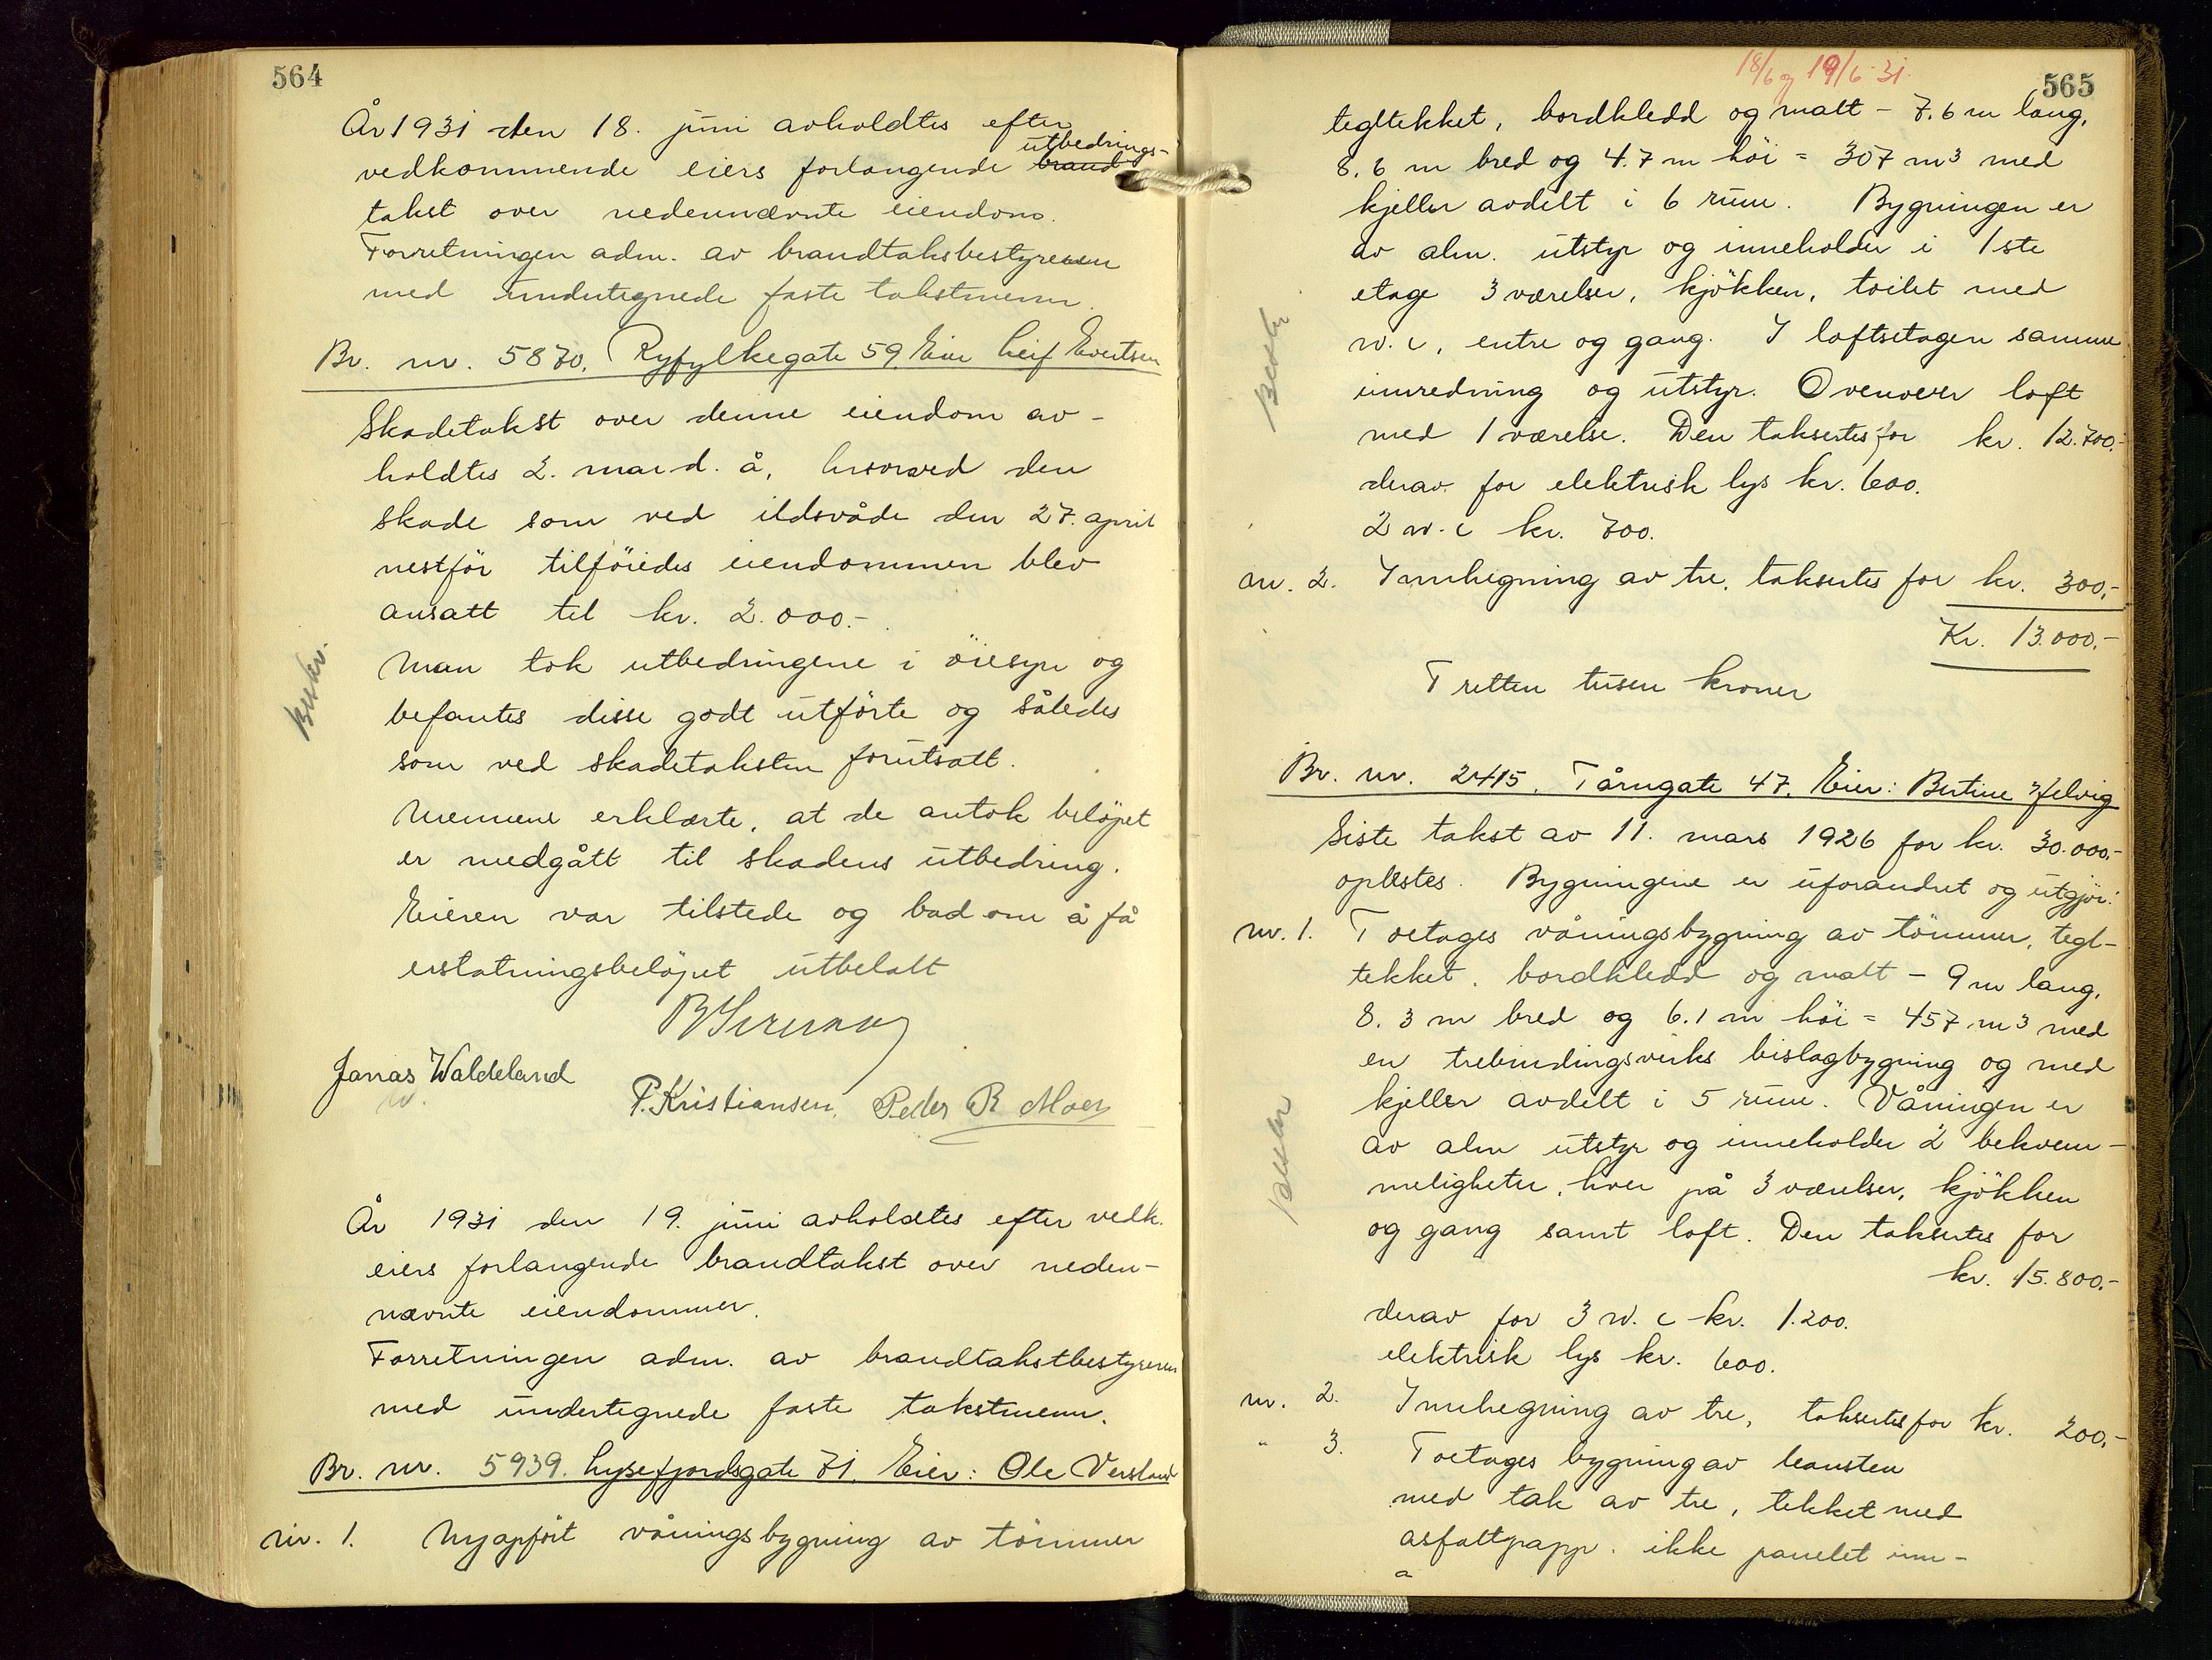 564
År 1931 den 18. juni avholdtes efter
utbedrings-
vedkommende eiers forlangende brand
takst over nedennævnte eiendom.
Forretningen adm. av brandtakstbestyreren
med undertegnede faste takstmenn.
Br. nr. 5870. Ryfylkegate 59. Eier Leif Evertsen
Skadetakst over denne eiendom av-
holdtes 2. mai d. å, hvorved den
skade som ved ildsvåde den 27. april
nestför tilföiedes eiendommen blev
ansatt til kr. 2.000.-
Man tok utbedringene i öiesyn og
befantes disse godt utförte og således
som ved skadetaksten forutsatt.
Mennene erklærte, at de antok belöpet
er medgått til skadens utbedring.
Eieren var tilstede og bad om å få
erstatningsbelöpet utbetalt
Beskr.
Jonas Waldeland
P. Kristiansen, Peder R Moen
År 1931 den 19. juni avholdtes efter vedk.
eiers forlangende brandtakst over neden-
nævnte eiendommer.
Forretningen adm. av brandtakstbestyreren
med undertegnede faste takstmenn.
Br. nr. 5939. Lysefjordsgate 71. Eier: Ole Versland
nr. 1. Nyopfört våningsbygning av tömmer
18/6 og 19/6-31.
565
tegltekket, bordkledd og malt - 7.6 m lang,
8.6 m bred og 4.7 m höi = 307 m3 med
kjeller avdelt i 6 rum. Bygningen er
av alm. utstyr og inneholder i 1ste
etage 3 værelser, kjökken, toilet med
w.c, entre og gang. I loftsetagen samme
innredning og utstyr. Ovenover loft
med 1 værelse. Den taksertes for kr. 12.700.-
derav for elektrisk lys kr. 600.
2 w.c kr. 700.
nr. 2. Innhegning av tre, taksertes for kr. 300,-
Kr. 13.000,-
Tretten tusen kroner
Beskr
Br. nr. 2415. Tårngate 47. Eier: Bertine Hjelvig
Siste takst av 11. mars 1926 for kr. 30.000,-
oplestes. Bygningene er uforandret og utgjör:
nr. 1. Toetages våningsbygning av tömmer, tegl-
tekket, bordkledd og malt - 9 m lang,
8.3 m bred og 6.1 m höi = 457 m3 med
en trebindingsverks bislagbygning og med
kjeller avdelt i 5 rum. Våningen er
av alm utstyr og inneholder 2 bekvem-
meligheter, hver på 3 værelser, kjökken
og gang samt loft. Den taksertes for
kr. 15.800,-
derav for 3 w.c kr. 1.200.
elektrisk lys kr. 600.
Beskr
nr. 2. Innhegning av tre, taksertes for kr. 200,-
" 3. Toetages bygning av leansten
med tak av tre, tekket med
asfaltpapp. ikke panelet inn-